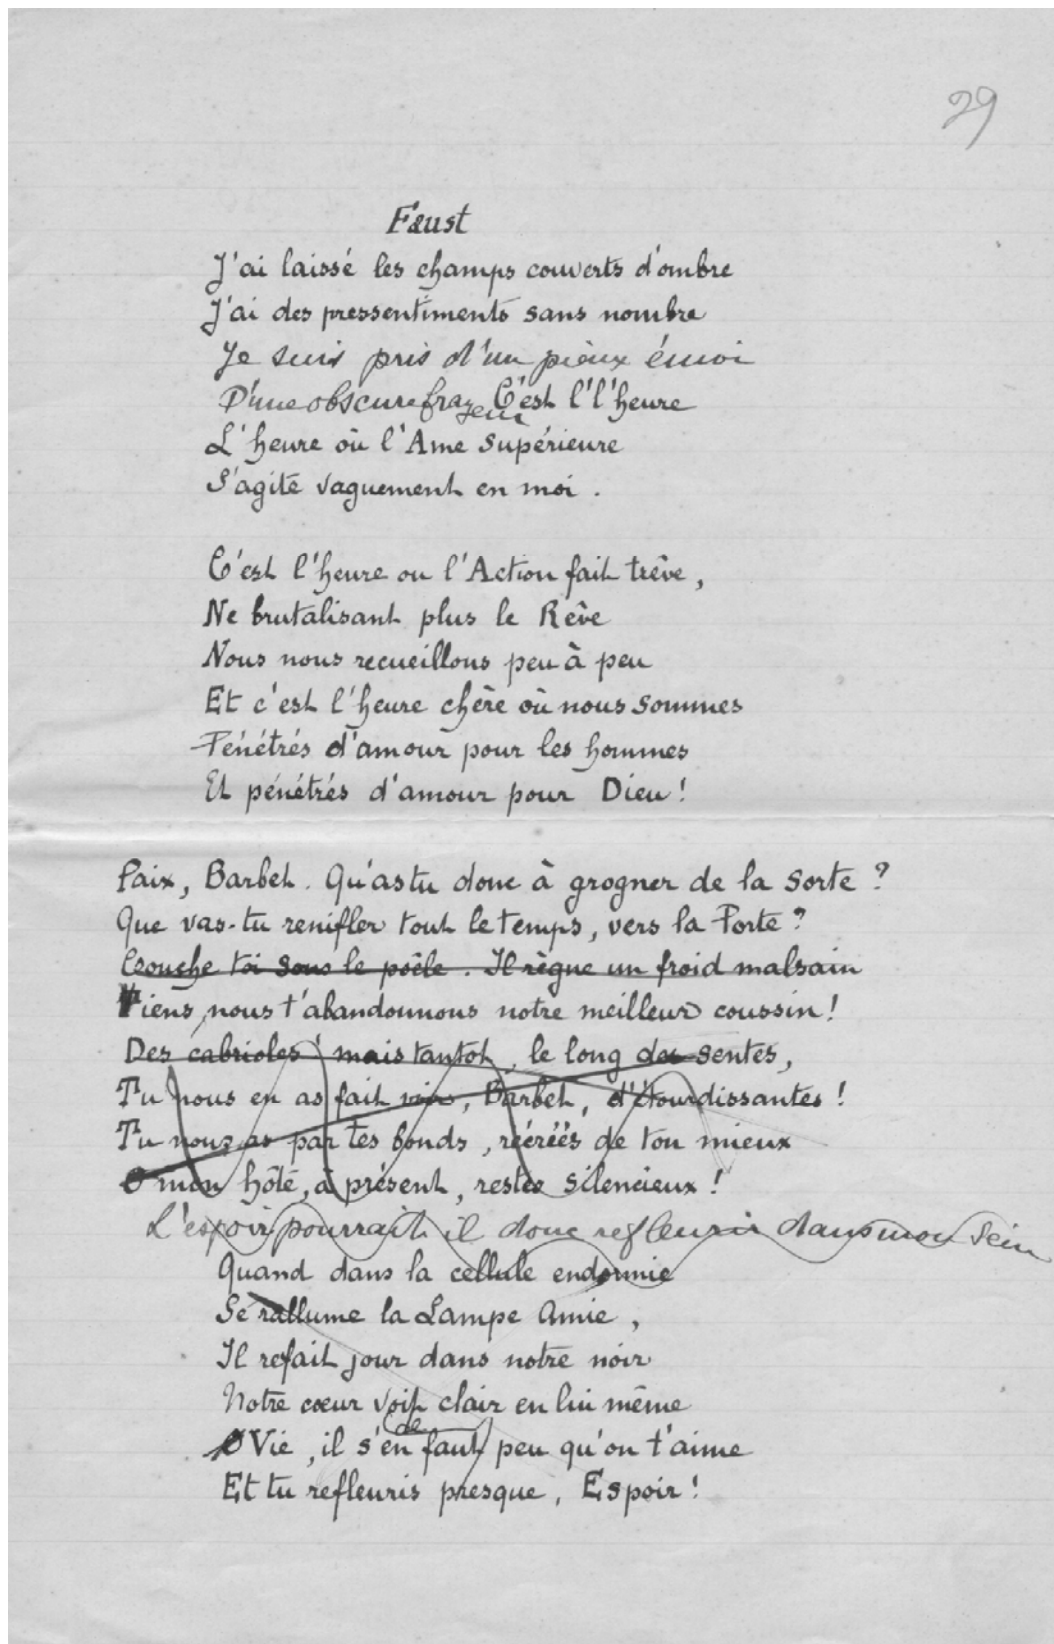 29
Faust
J'ai laissé les champs couverts d'ombre
J'ai des pressentiments sans nombre
Je suis pris d'un pieux émoi
D'une obscure frayeur C'est l'l'heure
L'heure où l'Ame Supérieure
S'agite vaguement en moi.
C'est l'heure ou l'Action fait trêve,
Ne brutalisant plus le Rêve
Nous nous recueillons peu à peu
Et c'est l'heure chère où nous sommes
Pénétrés d'amour pour les hommes
Et pénétrés d'amour pour Dieu!
Paix, Barbet. Qu'as tu donc à grogner de la sorte?
Que vas-tu renifler tout le temps, vers la Porte?
Couche toi sous le poêle. Il règne un froid malsain
Tiens, nous t'abandonnons notre meilleur coussin!
Des cabrioles! mais tantot, le long des sentes,
Tu nous en as fait voir, Barbet, d'étourdissantes!
Tu nous as par tes bonds, récréés de ton mieux
O mon hôte, à présent, restes silencieux!
L'espoir pourrait il donc refleurir dans mon sein
Quand dans la cellule endormie
Se rallume la Lampe Amie,
Il refait jour dans notre noir
Notre cœur voit clair en lui même
O Vie, il s'en faut de peu qu'on t'aime
Et tu refleuris presque, Espoir!